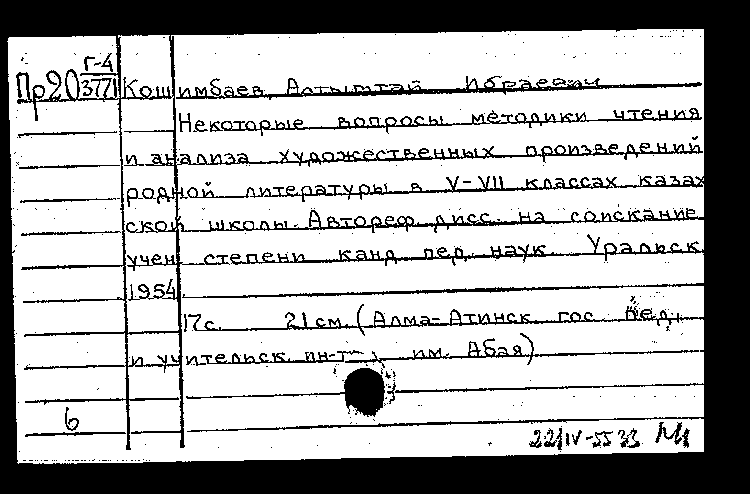 Г-4
Пр20 3771 Кошимбаев, Алтынтай Ибраевич
Некоторые вопросы методики чтения
и анализа художественных произведений
родной литературы в V-VII классах казах
ской школы. Автореф. дисс. на соискание
учен. степени канд. пед. наук. Уральск,
1954.
17с. 21см. (Алма-Атинск. гос. пед.
и учительск. ин-т им. Абая)
6
22/IV-55